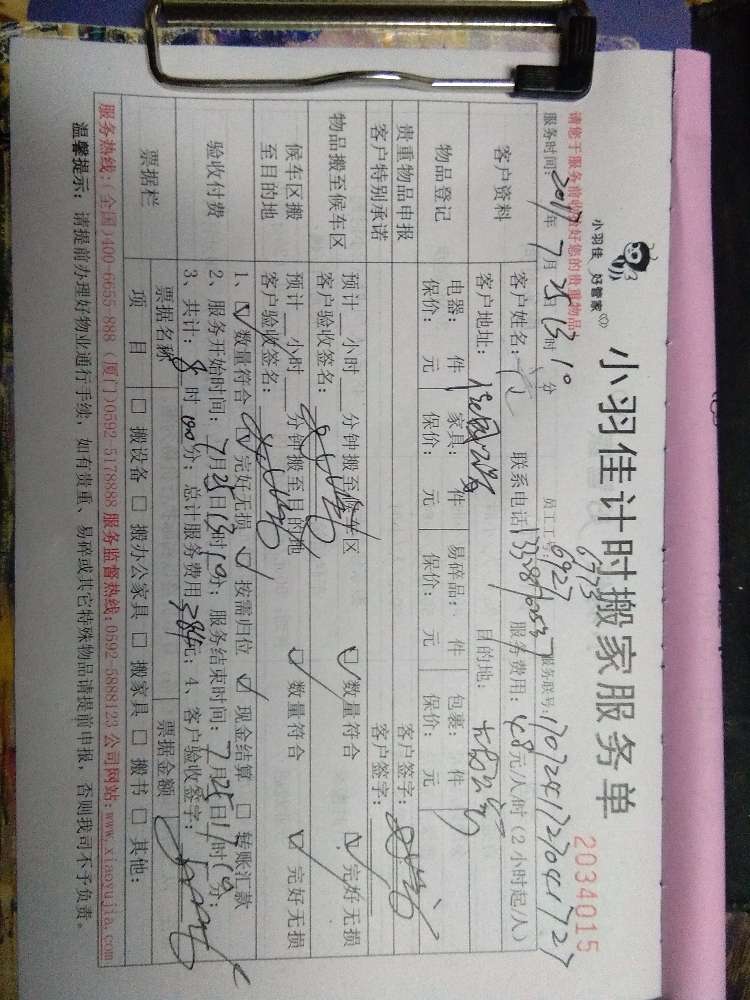 小羽佳 好管家
小羽佳计时搬家服务单
2034015
请您于服务前收捡好您的贵重物品
员工工号: 6773
6927
服务联号:
服务时间: 2017年 7月 25日 13时 10分
客户资料
客户姓名: 联系电话: 服务费用: 48元/人/时 (2小时起/人)
客户地址: 目的地:
物品登记
电器: 件 家具: 件 易碎品: 件 包裹: 件
保价: 元 保价: 元 保价: 元 保价: 元
贵重物品申报 客户签字:
客户特别承诺 客户签字:
物品搬至候车区
预计 小时 分钟搬至候车区 数量符合 完好无损
客户验收签名:
候车区搬至目的地
预计 小时 分钟搬至目的地 数量符合 完好无损
客户验收签名:
验收付费
1、 数量符合 完好无损 按需归位 现金结算 转账汇款
2、服务开始时间: 7月25日13时10分; 服务结束时间: 7月25日17时10分;
3、共计: 8时00分; 总计服务费用384元; 4、客户验收签字:
票据栏
票据名称 票据金额
项 目 搬设备 搬办公家具 搬家具 搬书 其他:
服务热线:(全国)400-6655-888 (厦门)0592-5178888 服务监督热线:0592-5888123 公司网站:www.xiaoyujia.com
温馨提示: 请提前办理好物业通行手续, 如有贵重、易碎或其它特殊物品请提前申报, 否则我司不予负责。